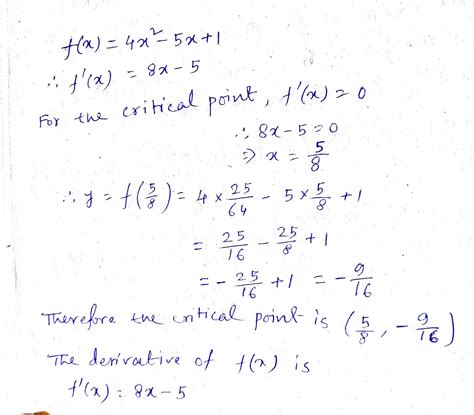 f(x) = 4x² - 5x + 1
∴ f'(x) = 8x - 5
For the critical point, f'(x) = 0
∴ 8x - 5 = 0
⇒ x = 5/8
∴ y = f(5/8) = 4 × 25/64 - 5 × 5/8 + 1
= 25/16 - 25/8 + 1
= - 25/16 + 1 = - 9/16
Therefore the critical point is (5/8, - 9/16)
The derivative of f(x) is
f'(x) = 8x - 5